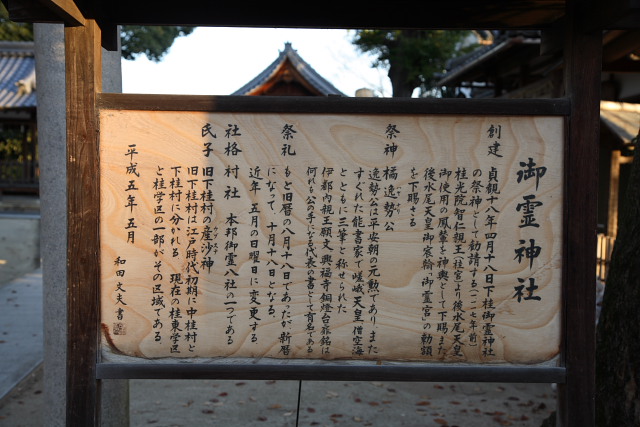 御霊神社
創建 貞観十八年四月十八日下桂御霊神社
の祭神として勧請する(一一一七年前)
桂光院智仁親王(桂宮)より後水尾天皇
御使用の鳳輦を神輿として下賜また
後水尾天皇御宸翰「御霊宮」の勅額
を下賜さる
祭神 橘逸勢公
逸勢公は平安朝の元勲であり また
すぐれた能書家で嵯峨天皇 僧空海
とともに三筆と称せられた
伊都内親王願文 興福寺銅燈台銘は
何れも公の手になる代表の書として有名である
祭礼 もと旧暦の八月十八日であったが新暦
になって、十月十八日となる、
近年、五月の日曜日に変更する、
社格 村社 本邦御霊八社の一つである
氏子 旧下桂村の産沙神
旧下桂村は江戸時代初期に中桂村と
下桂村に分かれる 現在の桂東学区
と桂学区の一部がその区域である、
平成五年五月
和田文夫書